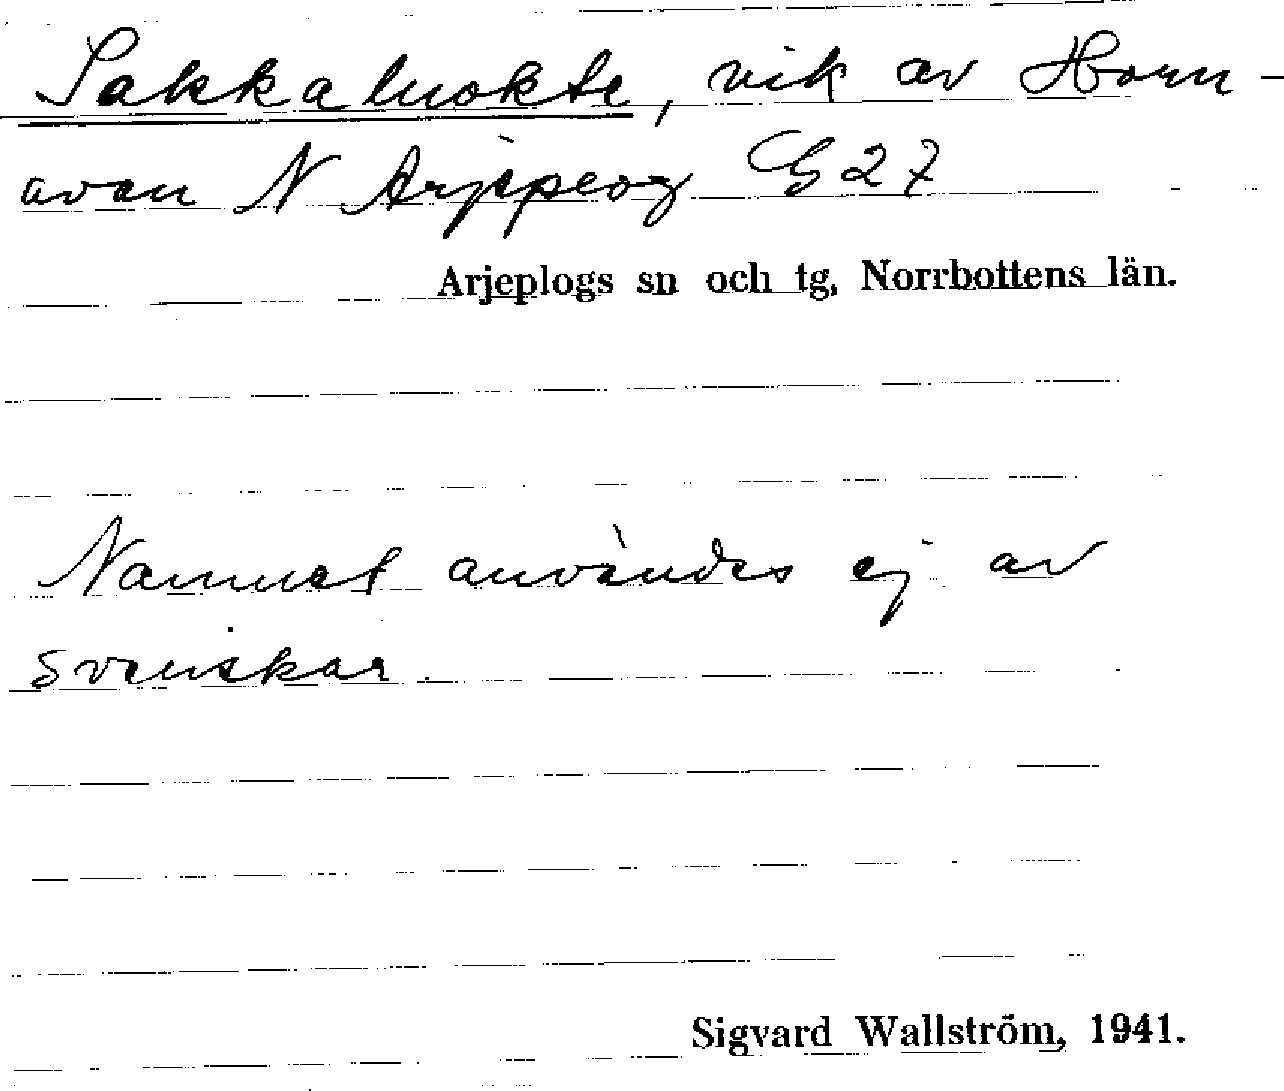 Sakkaluokte, vik av Horn-
avan N Arjepeog G 27
Arjeplogs sn och tg, Norrbottens län.
Namnet användes ej av
svenskar.
Sigvard Wallström, 1941.